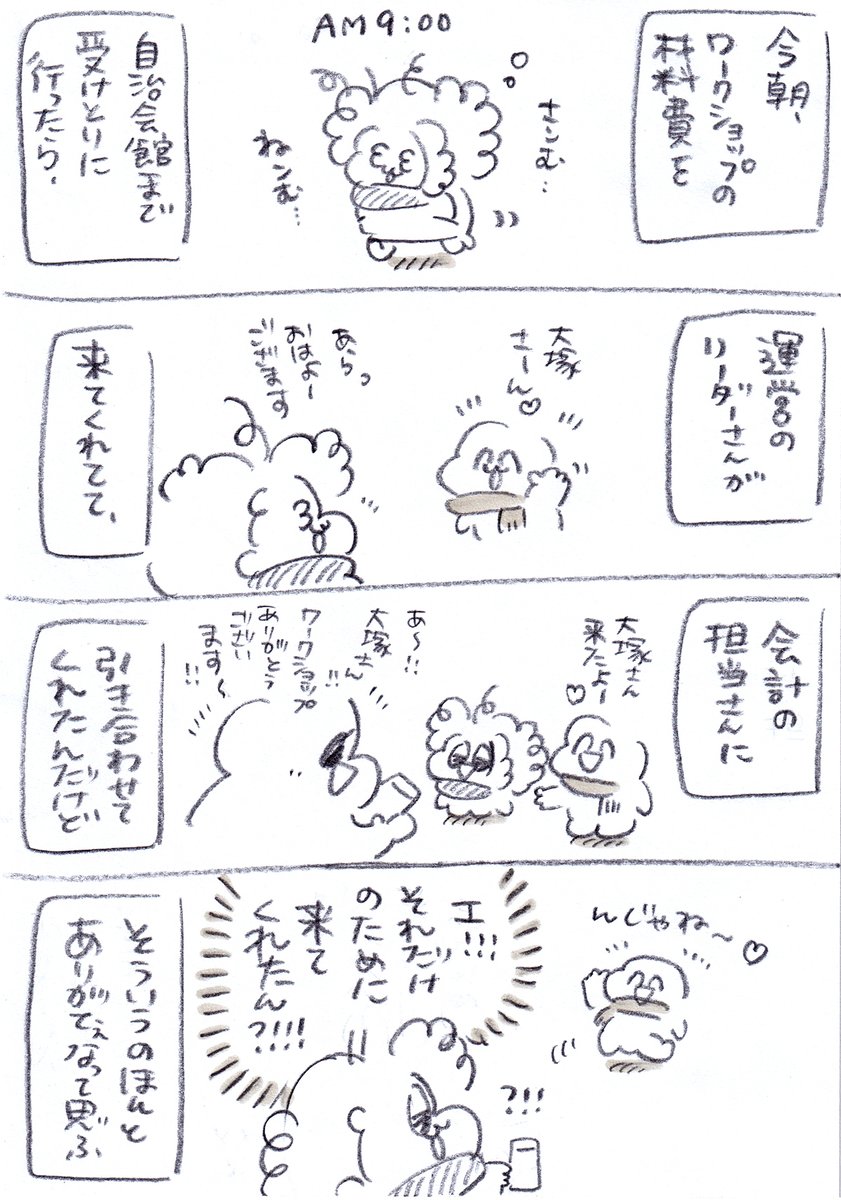 今朝、
ワークショップの
材料費を
AM9:00
さむむ…
ねむむ…
自治会館まで
受けとりに
行ったら、
運営の
リーダーさんが
大塚
さーん♡
あらっ
おはよー
ございます
来てくれてて、
会計の
担当さんに
大塚さん
来たよー
♡
あ〜!!
大塚さん
!!
ワークショップ
ありがとう
ござい
ます〜
!!
引き合わせて
くれたんだけど
んじゃね〜♡
エ!!!
それだけ
のために
来て
くれたん
?!!!!
?!!!
そういうのほんと
ありがてぇなって思ふ